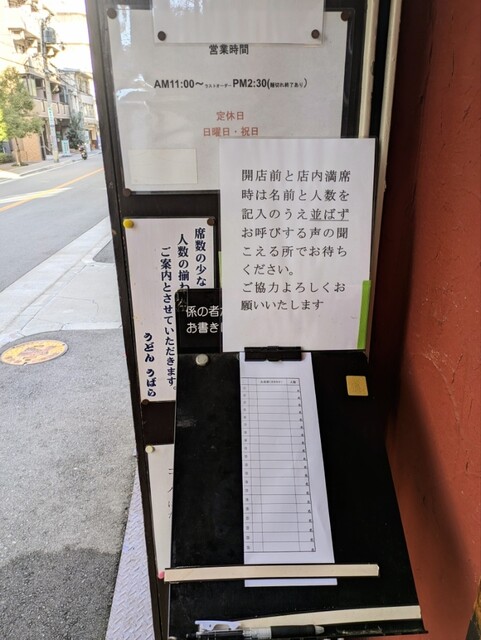 営業時間
AM11:00～ラストオーダーPM2:30(麺切れ終了あり)
定休日
日曜日・祝日
開店前と店内満席
時は名前と人数を
記入のうえ並ばず
お呼びする声の聞
こえる所でお待ち
ください。
ご協力よろしくお
願いいたします
席数の少な
人数の揃わ
ご案内とさせていただきます。
うどん うばら
係の者が
お書き